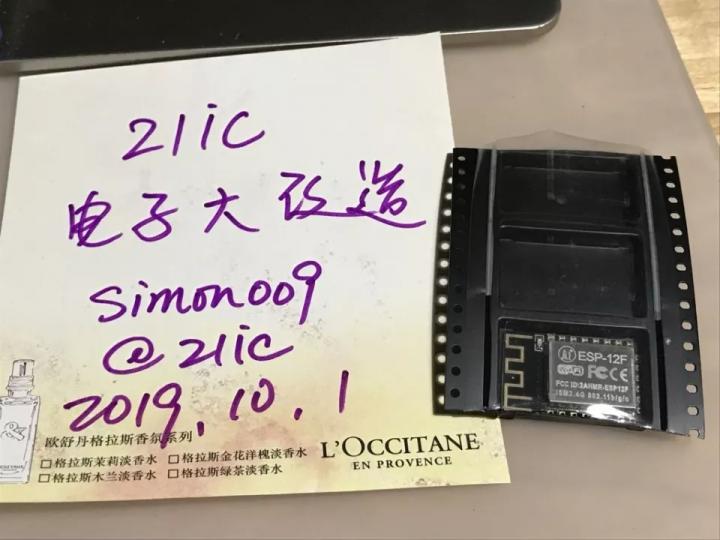 21ic
电子大改造
simon009
@21ic
2019.10.1
欧舒丹格拉斯香氛系列
□格拉斯茉莉淡香水 □格拉斯金花洋槐淡香水
□格拉斯木兰淡香水 □格拉斯绿茶淡香水
L'OCCITANE
EN PROVENCE
Ai ESP-12F
Wi-Fi FCC CE
FCC ID:2AHMR-ESP12F
ISM2.4G 802.11b/g/n